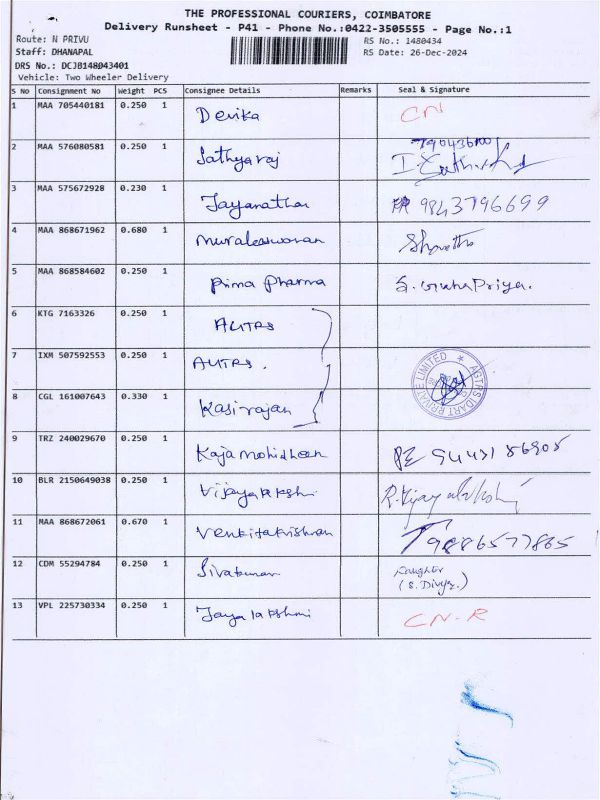 THE PROFESSIONAL COURIERS, COIMBATORE
Delivery Runsheet - P41 - Phone No.:0422-3505555 - Page No.:1
Route: N PRIVU RS No.: 1480434
Staff: DHANAPAL RS Date: 26-Dec-2024
DRS No.: DCJB148043401
Vehicle: Two Wheeler Delivery
S No Consignment No Weight PCS Consignee Details Remarks Seal & Signature
1 MAA 705440181 0.250 1 Devika
2 MAA 576080581 0.250 1 Sathyaraj
3 MAA 575672928 0.230 1 Jayanathan 9843796699
4 MAA 868671962 0.680 1 Muraleeswaran Shwetha
5 MAA 868584602 0.250 1 Prima Pharma
6 KTG 7163326 0.250 1
7 IXM 507592553 0.250 1
PRIVATE LIMITED
8 CGL 161007643 0.330 1 Kasirajan
9 TRZ 240029670 0.250 1 Kajamohideen
10 BLR 2150649038 0.250 1 Vijayalakshmi R.Vijayalakshmi
11 MAA 868672061 0.670 1 Venkitakrishnan 9886577865
12 CDM 55294784 0.250 1 Sivakumar Daughter
(S. Divya.)
13 VPL 225730334 0.250 1 Jayalakshmi CN-R